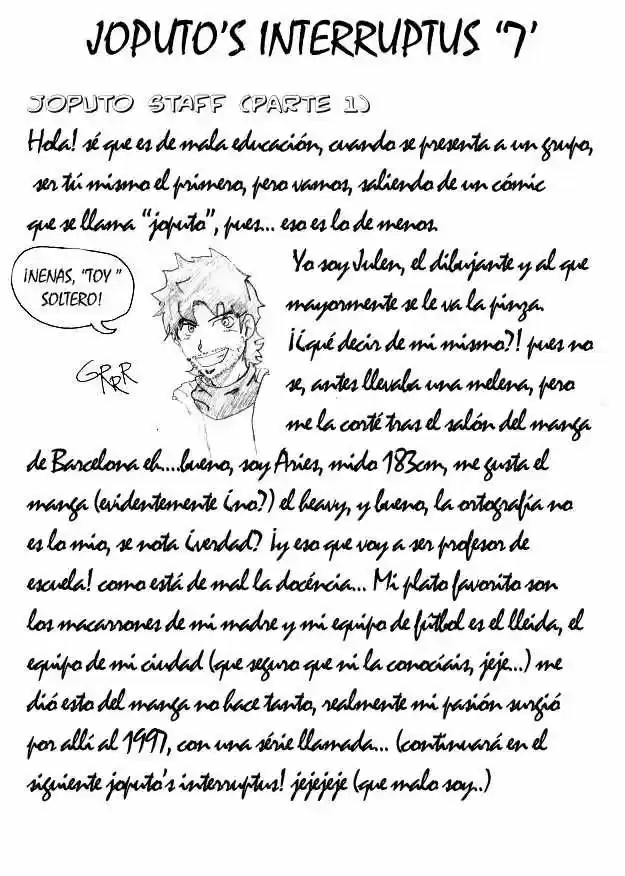 JOPUTO'S INTERRUPTUS '7'
JOPUTO STAFF (PARTE 1)
Hola! sé que es de mala educación, cuando se presenta a un grupo,
ser tú mismo el primero, pero vamos, saliendo de un cómic
que se llama "joputo", pues... eso es lo de menos.
¡NENAS, "TOY"
SOLTERO!
GRRR
Yo soy Julen, el dibujante y al que
mayormente se le va la pinza.
¡¿Qué decir de mi mismo?! pues no
se, antes llevaba una melena, pero
me la corté tras el salón del manga
de Barcelona eh....bueno, soy Aries, mido 183cm, me gusta el
manga (evidentemente ¿no?) el heavy, y bueno, la ortografía no
es lo mio, se nota ¿verdad? ¡y eso que voy a ser profesor de
escuela! como está de mal la docéncia... Mi plato favorito son
los macarrones de mi madre y mi equipo de fútbol es el lleida, el
equipo de mi ciudad (que seguro que ni la conocíais, jeje...) me
dió esto del manga no hace tanto, realmente mi pasión surgió
por allí al 1997, con una série llamada... (continuará en el
siguiente joputo's interruptus! jejejeje (que malo soy..)